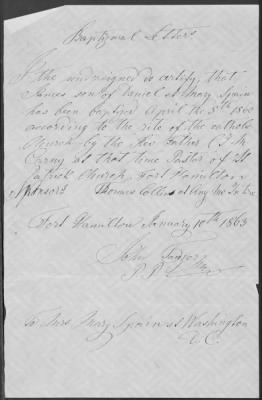 Baptismal Letters
I the undersigned do certify, that
James son of Daniel & Mary Spain
has been baptized April the 5th 1860
according to the rite of the catholic
Church by the Rev Father
at that time Pastor of St
Patrick Church, Fort Hamilton
Sponsors Thomas Collins &
Fort Hamilton January 10th 1863
John
P.P.
to Mrs Mary Spain at Washington
D.C.